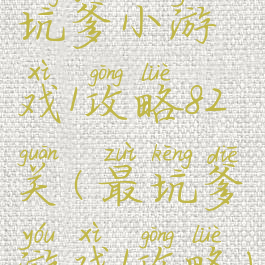 坑爹小游
xì gōng lüè
戏1攻略82
guān zuì kēng diē
关(最坑爹
yóu xì gōng lüè
游戏1攻略)